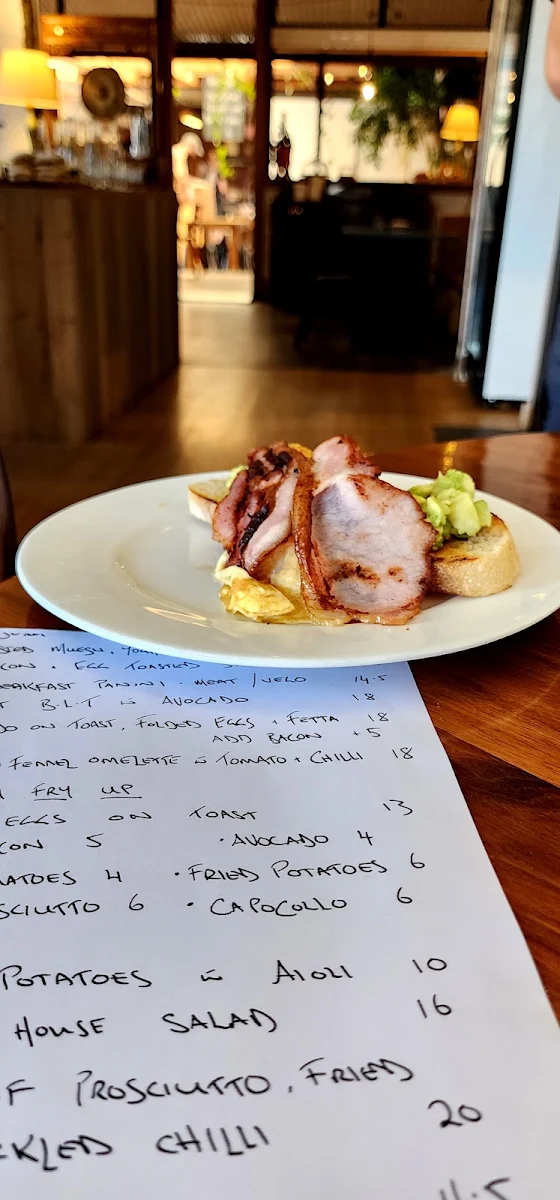 CON + EGG TOASTED
EAKFAST PANINI. MEAT / VEGO 14.5
T B.L.T W AVOCADO 18
DO ON TOAST, FOLDED EGGS + FETTA 18
ADD BACON +5
FENNEL OMELETTE W TOMATO + CHILLI 18
FRY UP
EGGS ON TOAST 13
CON 5 · AVOCADO 4
ATOES 4 · FRIED POTATOES 6
SCIUTTO 6 · CAPOCOLLO 6
POTATOES W AIOLI 10
HOUSE SALAD 16
F PROSCIUTTO, FRIED
CKLED CHILLI 20